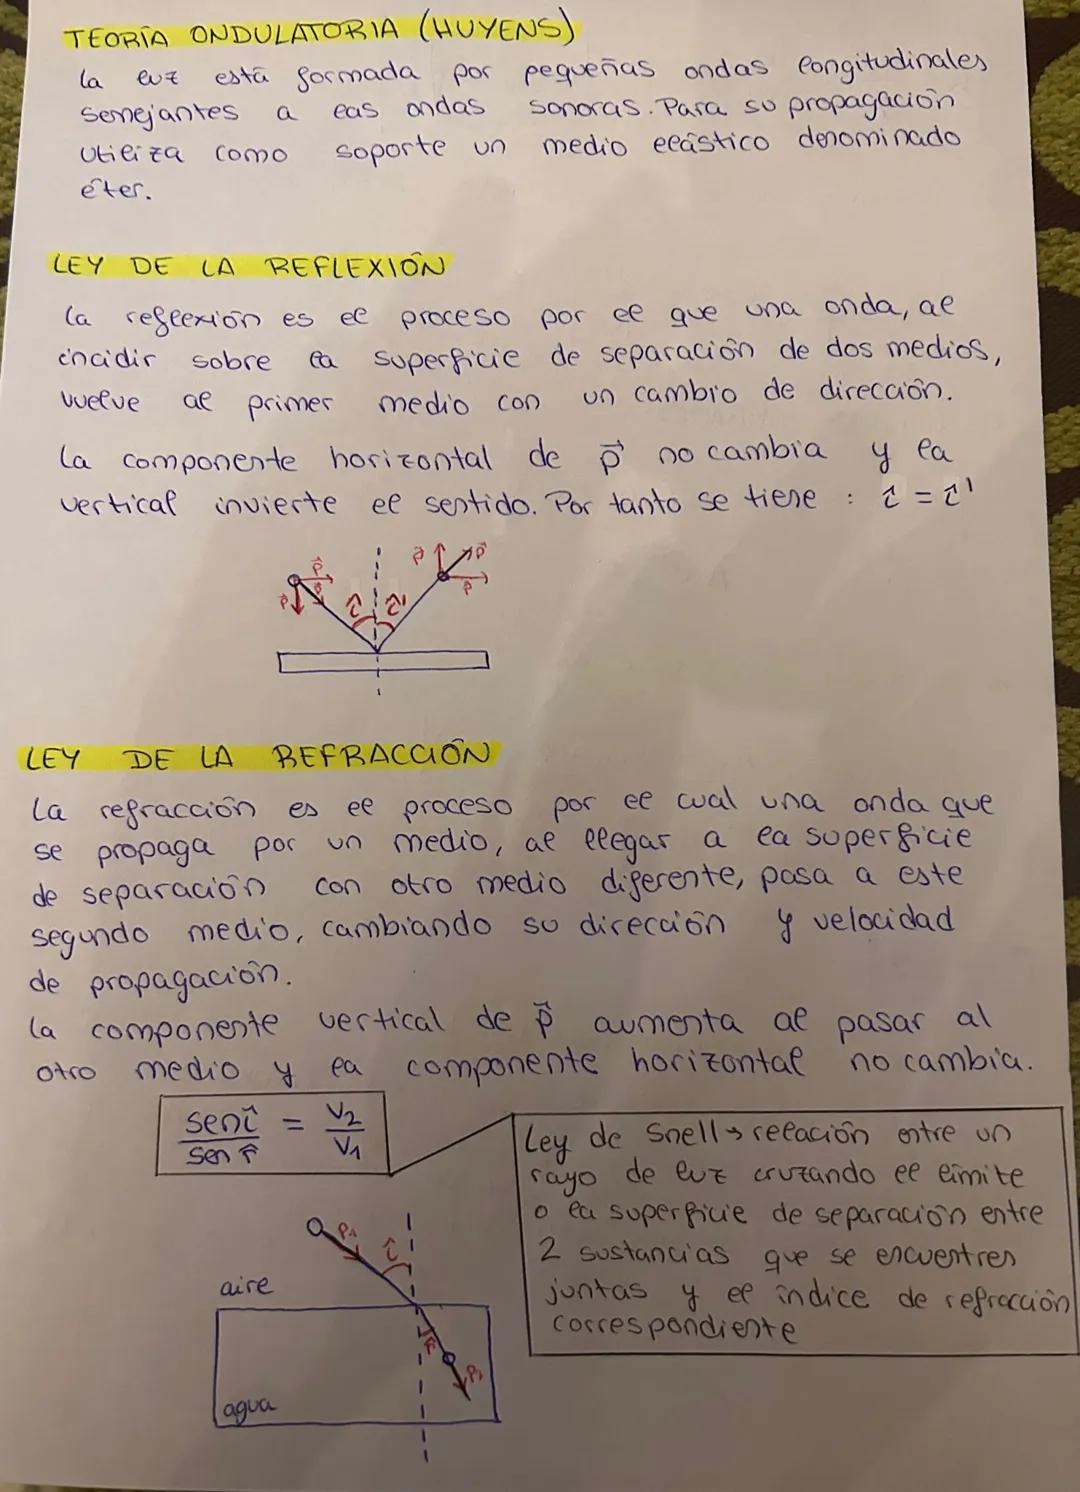 TEORÍA ONDULATORIA (HUYENS)
La luz está formada por pequeñas ondas longitudinales
semejantes a las ondas sonoras. Para su propagación
utiliza como soporte un medio elástico denominado
éter.
LEY DE LA REFLEXIÓN
La reflexión es el proceso por el que una onda, al
incidir sobre la superficie de separación de dos medios,
vuelve al primer medio con un cambio de dirección.
La componente horizontal de p⃗ no cambia y la
vertical invierte el sentido. Por tanto se tiene : î = î'
p⃗ p⃗ p⃗
p⃗ p⃗ î î' p⃗
LEY DE LA REFRACCIÓN
La refracción es el proceso por el cual una onda que
se propaga por un medio, al llegar a la superficie
de separación con otro medio diferente, pasa a este
segundo medio, cambiando su dirección y velocidad
de propagación.
La componente vertical de p⃗ aumenta al pasar al
otro medio y la componente horizontal no cambia.
sen î / sen r̂ = V2 / V1
Ley de Snell → relación entre un
rayo de luz cruzando el límite
o la superficie de separación entre
2 sustancias que se encuentren
juntas y el índice de refracción
correspondiente
P1 î
aire
r̂
P2
agua